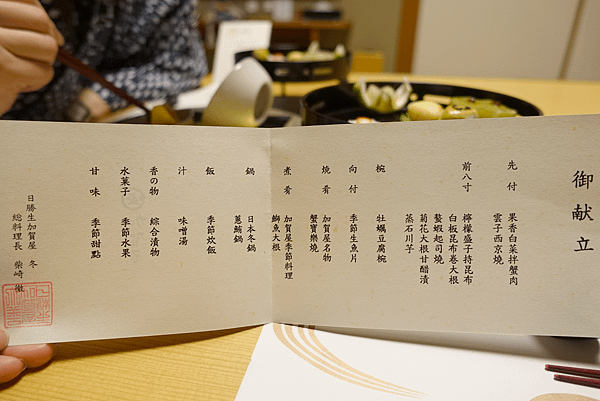 御献立
先付 果香白菜拌蟹肉
雲子西京燒
前八寸 檸檬盛子持昆布
白板昆布卷大根
螯蝦起司燒
菊花大根甘醋漬
蒸石川芋
椀 牡蠣豆腐椀
向付 季節生魚片
燒肴 加賀屋名物
蟹寶樂燒
煮肴 加賀屋季節料理
鰤魚大根
鍋 日本冬鍋
蔥鮪鍋
飯 季節炊飯
汁 味噌湯
香の物 綜合漬物
水菓子 季節水果
甘味 季節甜點
日勝生加賀屋 冬
総料理長 柴崎 徹